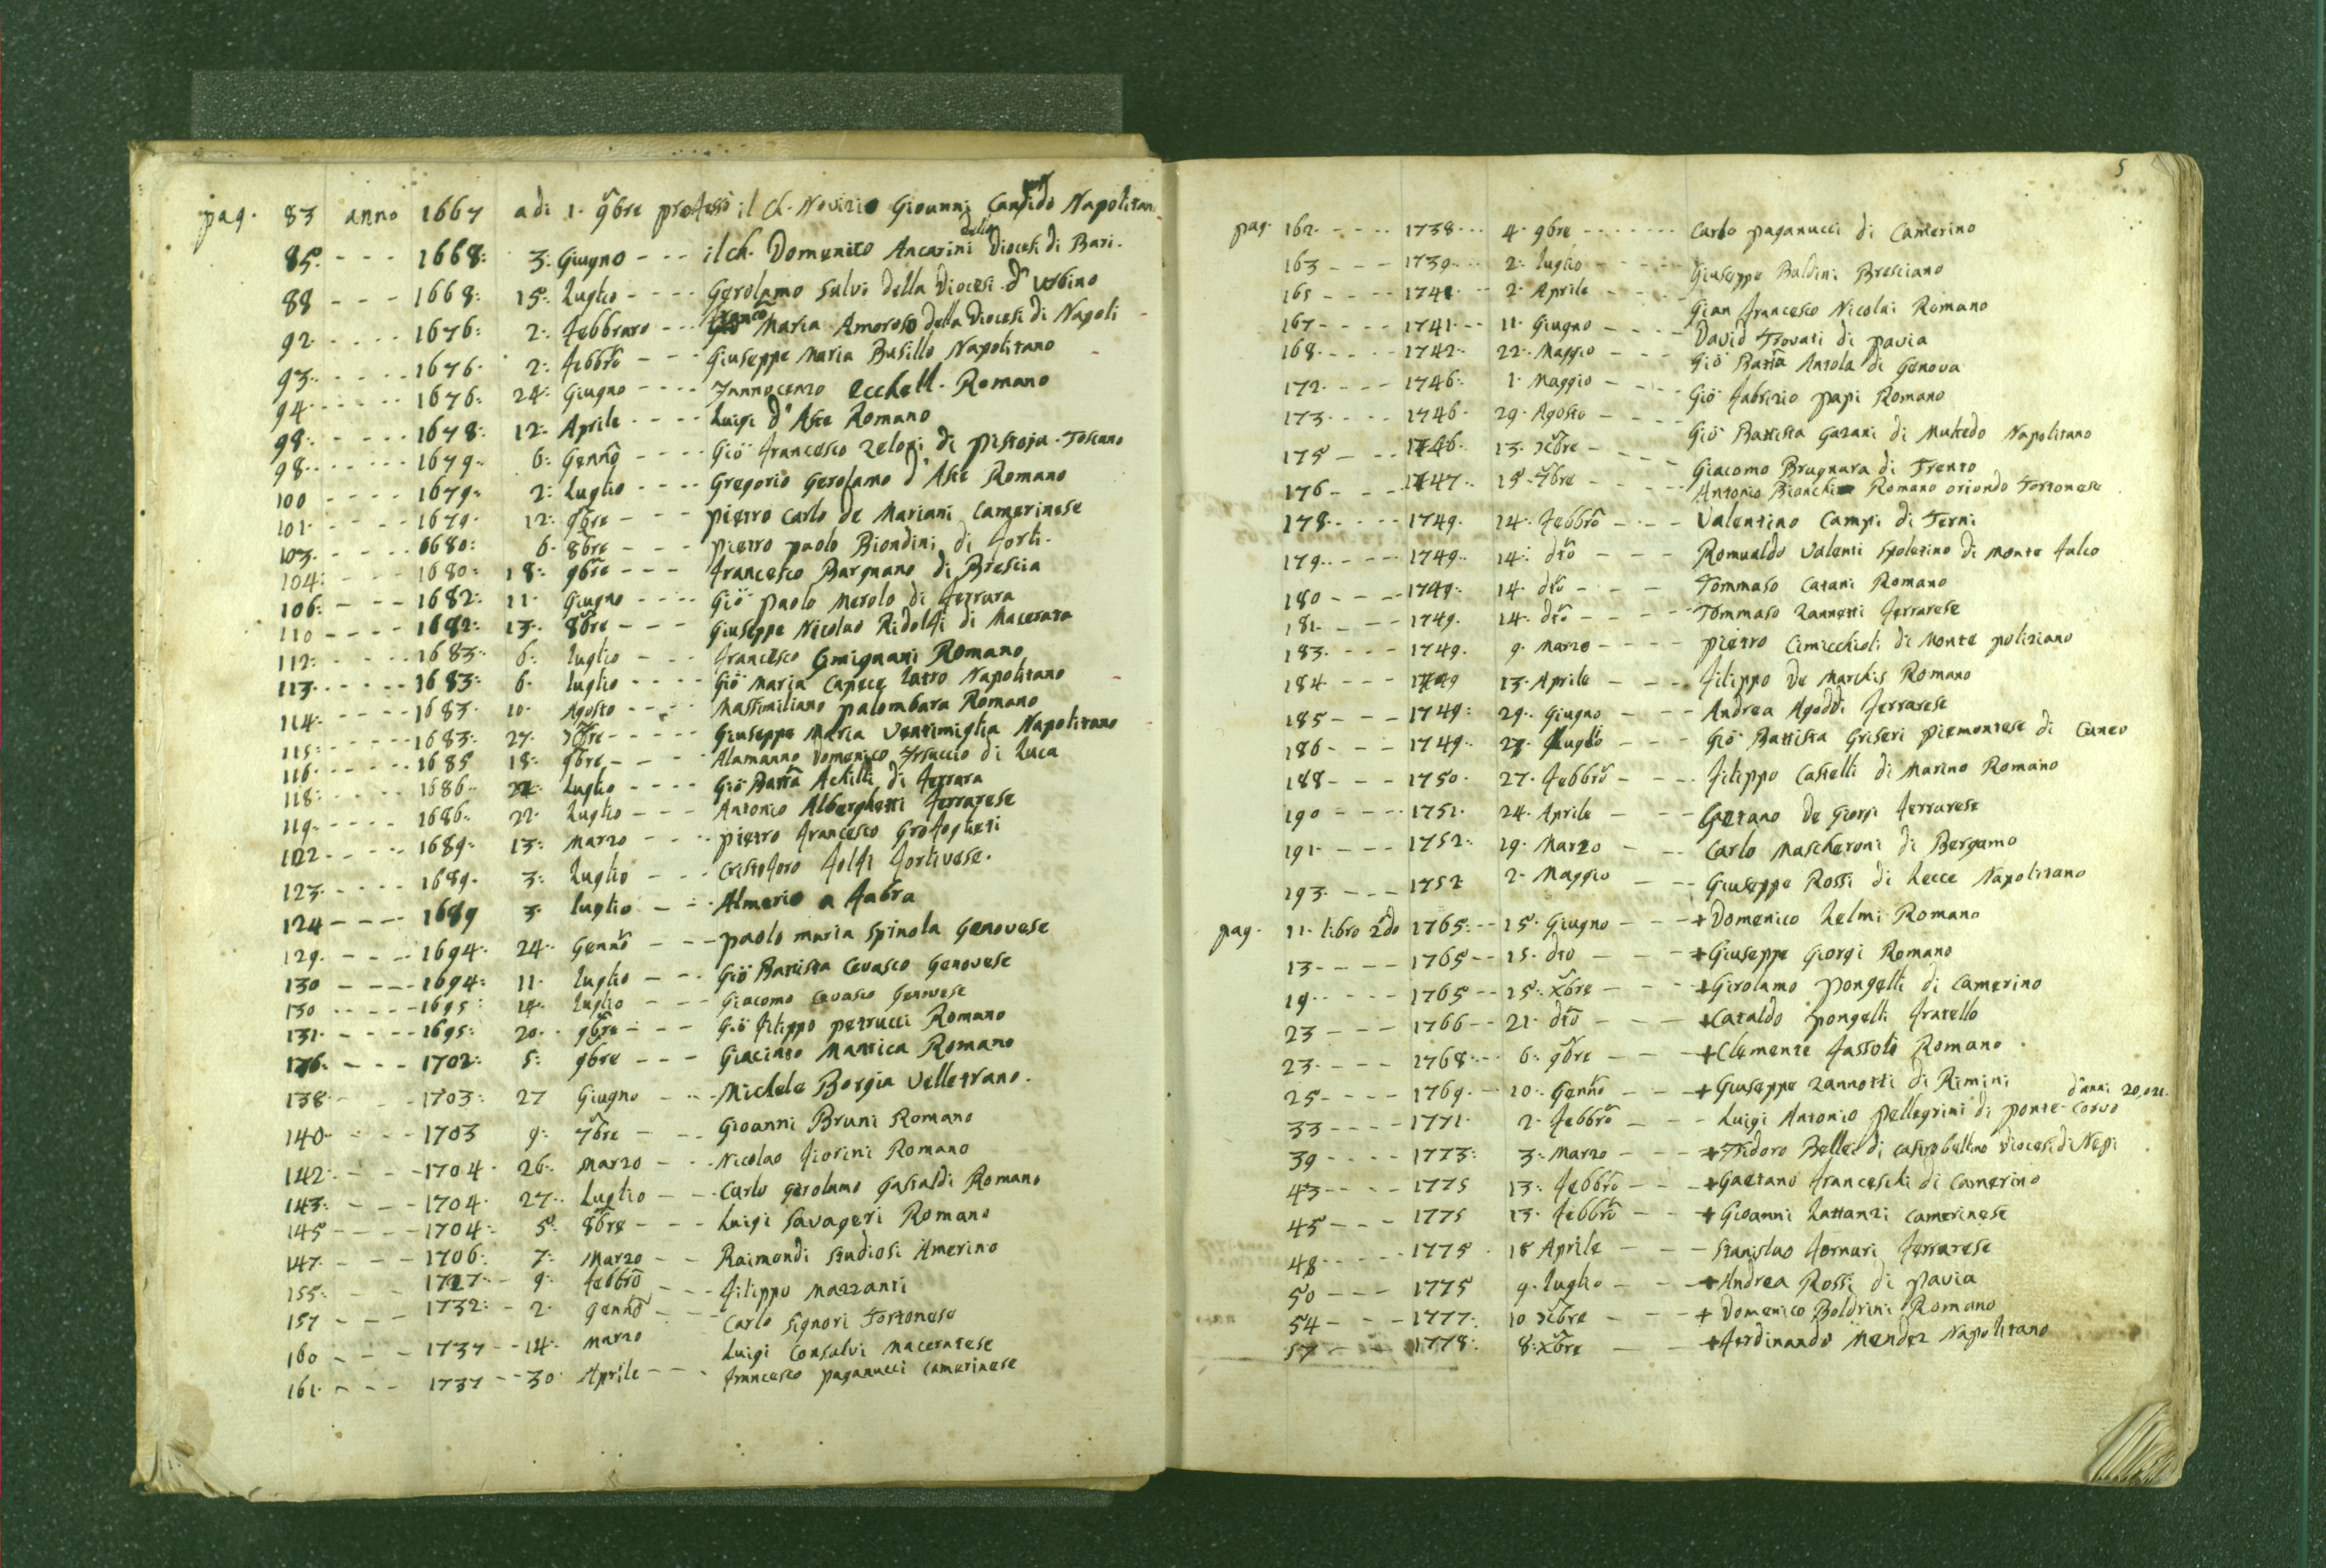 pag. 83 anno 1667 adi 1. 9bre professò il Ch. Novizio Giovanni Candido Napolitan
85. - - - 1668: 3: Giugno - - - il ch. Domenico Ancarini della Diocesi di Bari.
88 - - - 1668: 15: Luglio - - - - Gerolamo Salvi della Diocesi d'Urbino
92. - - - - 1676: 2: Febbraro - - - Franco Maria Amoroso della Diocesi di Napoli
93. - - - - 1676. 2: Febbro - - - Giuseppe Maria Busillo Napolitano
94. - - - - 1676: 24: Giugno - - - - Innocenzo Ecchell. Romano
98: - - - - 1678: 12: Aprile - - - - Luigi d'Aste Romano
98. - - - - 1679. 6: Genno - - - - Gio Francesco Zeloni di Pistoja Toscano
100 - - - - 1679. 2: Luglio - - - - Gregorio Gerolamo d'Aste Romano
101. - - - - 1679. 12: 9bre - - - pietro Carlo de Mariani Camerinese
103. - - - - 1680: 6. 8bre - - - pietro paolo Biondini di Forlì.
104: - - - 1680: 18: 9bre - - - Francesco Bargnano di Brescia
106: - - - 1682: 11. Giugno - - - - Gio paolo Merolo di Ferrara
110 - - - - 1682: 13. 8bre - - - Giuseppe Nicolao Ridolfi di Macerata
112: - - - - 1683. 6. luglio - - - Francesco Gmignani Romano
113. - - - - 1683: 6. luglio - - - - Gio Maria Capece Latro Napolitano
114. - - - - 1683. 10. Agosto - - - - Massimiliano palombara Romano
115: - - - - 1683: 27. Xbre - - - - Giuseppe Maria Ventimiglia Napolitano
116. - - - - 1685 18: 9bre - - - Alamanno Domenico di Luca
118: - - - - 1686. 22: Luglio - - - - Gio Batta Achilli di Ferrara
119. - - - - 1686: 22. Luglio - - - Antonio Alberghetti Ferrarese
122. - - - - 1689: 13: Marzo - - - pietro Francesco Grofoglieti
123. - - - - 1689. 3: Luglio - - - Cristoforo Folfi Forlivese.
124 - - - - 1689 3. luglio - - - Almerio a Fabra
129. - - - 1694: 24: Genno - - - paolo maria Spinola Genovese
130 - - - - 1694: 11. luglio - - - Gio Battista Cevasco Genovese
130 - - - - 1695: 14. luglio - - - Giacomo Cevasco Genovese
131. - - - - 1695: 20. 9bre - - - Gio Filippo petrucci Romano
136. - - - 1702: 5: 9bre - - - Giacinto Mantica Romano
138 - - - 1703: 27 Giugno - - - Michele Borgia Velletrano.
140 - - - 1703 9: 7bre - - - Gioanni Bruni Romano
142: - - - 1704. 26. Marzo - - - Nicolao Fiorini Romano
143: - - - 1704. 27. Luglio - - - Carlo Gerolamo Gastaldi Romano
145 - - - - 1704: 5. 8bre - - - Luigi Savageri Romano
147. - - - 1706: 7: Marzo - - Raimondi Studiosi Amerino
155: - - 1727. - 9. Febbro - - - Filippo Mazzanti
157 - - - 1732: - 2. Genno - - Carlo Signori Tortonese
160 - - - 1737 - - 14. Marzo Luigi Consalvi Maceratese
161. - - - 1737 - - 30. Aprile - - - Francesco paganucci Camerinese
5
pag. 162. - - - - 1738. - - 4. 9bre - - - - - Carlo paganucci di Camerino
163 - - - 1739. - - 2: luglio - - - - Giuseppe Baldini Bresciano
165 - - - - 1741 - - 2. Aprile - - - - Gian Francesco Nicolai Romano
167 - - - - 1741. - - 11. Giugno - - - - David Trovati di pavia
168. - - - - 1742. 22. Maggio - - - Gio Batta Antola di Genova
172. - - - - 1746. 1. Maggio - - - - Gio Fabrizio papi Romano
173. - - - - 1746. 29. Agosto - - - - Gio Battista Gazani di Multedo Napolitano
175 - - - 1746. 13. Xbre - - - - Giacomo Brugnara di Trento
176 - - - 1747. 15. 7bre - - - - Antonio Bianchi Romano oriondo Tortonese
178. - - - - 1749. 14. Febbro - - - Valentino Campi di Terni
179. - - - - 1749. 14. dto - - - Romualdo Valenti Spoletino di Monte Falco
180 - - - 1749. 14. dto - - - Tommaso Catani Romano
181. - - - 1749. 14. dto - - - - Tommaso Zannetti Ferrarese
183. - - - 1749. 9. Marzo - - - - pietro Cimicchioli di Monte poliziano
184 - - - 1749 13. Aprile - - - Filippo De Marchis Romano
185 - - - 1749: 29. Giugno - - - Andrea Agoddi Ferrarese
186 - - - 1749. 27. Luglio - - - Gio Battista Griseri piemontese di Cuneo
188 - - - 1750. 27. Febbro - - - Filippo Castelli di Marino Romano
190 - - - - 1751. 24. Aprile - - - Gaetano De Giorgi Ferrarese
191. - - - 1752: 19. Marzo - - - Carlo Mascheroni di Bergamo
193. - - - 1752 2. Maggio - - - Giuseppe Rossi di Lecce Napolitano
pag. 11. libro 2do 1765: - - 15. Giugno - - - + Domenico Lelmi Romano
13. - - - 1765 - - 15. dto - - - + Giuseppe Giorgi Romano
19. - - - - 1765 - - 15. Xbre - - - + Girolamo pongelli di Camerino
23 - - - 1766 - - 21. dto - - - + Cataldo pongelli Fratello
23. - - - 1768: - - 6. 9bre - - - + Clemente Fassoli Romano.
25 - - - - 1769. - - 10. Genno - - - + Giuseppe Zannotti di Rimini
33 - - - - 1771. 2. Febbro - - - Luigi Antonio pellegrini di ponte-corvo d'anni 20
39 - - - - 1773: 3. Marzo - - - + Isidoro Bellei di Castrobellino Diocesi di Nepi
43 - - - - 1775 13. Febbro - - - + Gaetano Franceschi di Camerino
45 - - - 1775 13. Febbro - - - + Gioanni Lattanzi Camerinese
48 - - - - 1775. 18 Aprile - - - Stanislao Fornari Ferrarese
50 - - - 1775 9. luglio - - - + Andrea Rossi di pavia
54 - - - 1777. 10 Xbre - - - + Domenico Boldrini Romano
57 - - - 1778: 8: Xbre - - + Ferdinando Mendez Napolitano